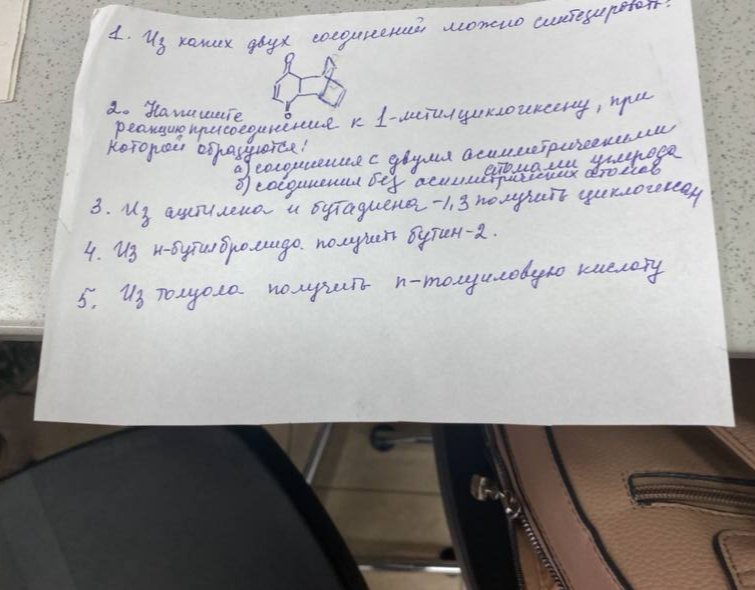 1. Из каких двух соединений можно синтезировать:
O
O
2. Напишите
реакцию присоединения к 1-метилциклогексену, при
которой образуются:
а) соединения с двумя асимметрическими
атомами углерода
б) соединения без асимметрических атомов
3. Из ацетилена и бутадиена-1,3 получить циклогексан
4. Из н-бутилбромида получить бутин-2.
5. Из толуола получить п-толуиловую кислоту